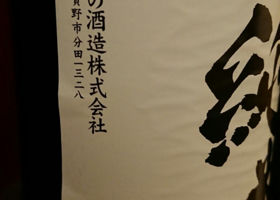 の酒造株式会社
野市分田一三二八